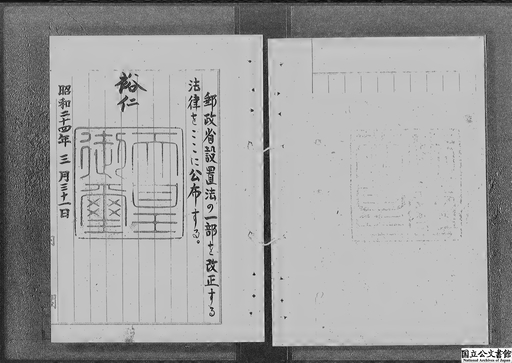 郵政省設置法の一部を改正する
法律をここに公布する。
裕仁
天皇
御璽
昭和二十四年三月三十一日
国立公文書館
National Archives of Japan